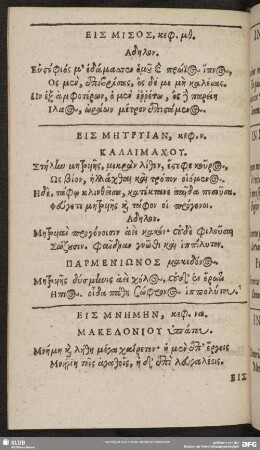 ΕΙΣ ΜΙΣΟΣ, κεφ. μθ.
Ἄδηλον.
Ὃς μὲν, ἐπιτρέψας, ὃς δέ με μὴ καλέσας.
ὧν ἐξ ἀμφοτέρων, ὁ μὲν ἐρρέτω, ὃς ἢ παρείη
Ἵλαος, ὡράων μέτρον ἐπιστάμενος.
ΕΙΣ ΜΗΤΡΥΙΑΝ, κεφ. ν.
ΚΑΛΛΙΜΑΧΟΥ.
Στήλην μητρυιῆς, μικρὰν λίθον, ἔστεφε κοῦρος,
Ὡς βίον, ἠλλάχθαι καὶ τρόπον οἰόμενος.
Ἡ δὲ, τάφῳ κλινθεῖσα, κατέκτανε παῖδα πεσοῦσα.
φεύγετε μητρυιῆς καὶ τάφον οἱ πρόγονοι.
Ἄδηλον.
Μητρυιαὶ προγόνοισιν ἀεὶ κακόν· οὐδὲ φιλοῦσαι
Σώζουσιν. Φαίδραν γνῶθι καὶ ἱππόλυτον.
ΠΑΡΜΕΝΙΩΝΟΣ μακεδόνος.
Μητρυιῆς δύσμηνις ἀεὶ χόλος, οὐδ᾽ ἐν ἔρωτι
Ἤπιος. οἶδα πάθη σώφρονος ἱππολύτου.
ΕΙΣ ΜΝΗΜΗΝ, κεφ. να.
ΜΑΚΕΔΟΝΙΟΥ ὑπάτου.
Μνήμη καὶ λήθη μέγα χαίρετον· ἡ μὲν ἐπ᾽ ἔργοις
Μνήμη τοῖς ἀγαθοῖς, ἡ δ᾽ ἐπὶ λευγαλέοις.
ΕΙΣ
SLUB
DFG